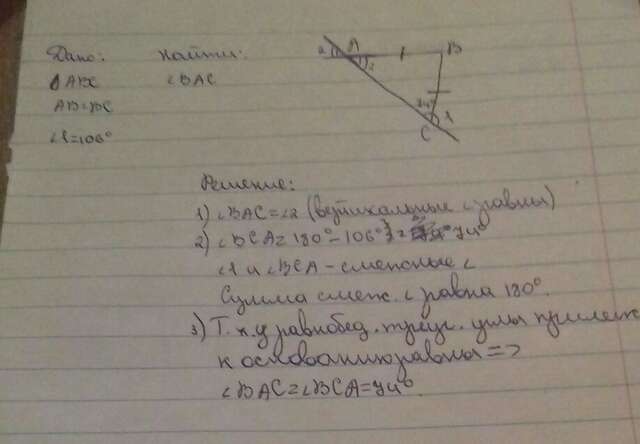 Дано: Найти:
Δ ABC ∠BAC
AB=BC
∠1=106°
2 A B
74° 1
C
Решение:
1) ∠BAC=∠2 (вертикальные ∠ равны)
2) ∠BCA=180°-106°= 74°
∠1 и ∠BCA - смежные ∠
Сумма смеж. ∠ равна 180°.
3) Т.к. у равнобед. треуг. углы прилеж
к основанию равны =>
∠BAC=∠BCA=74°.